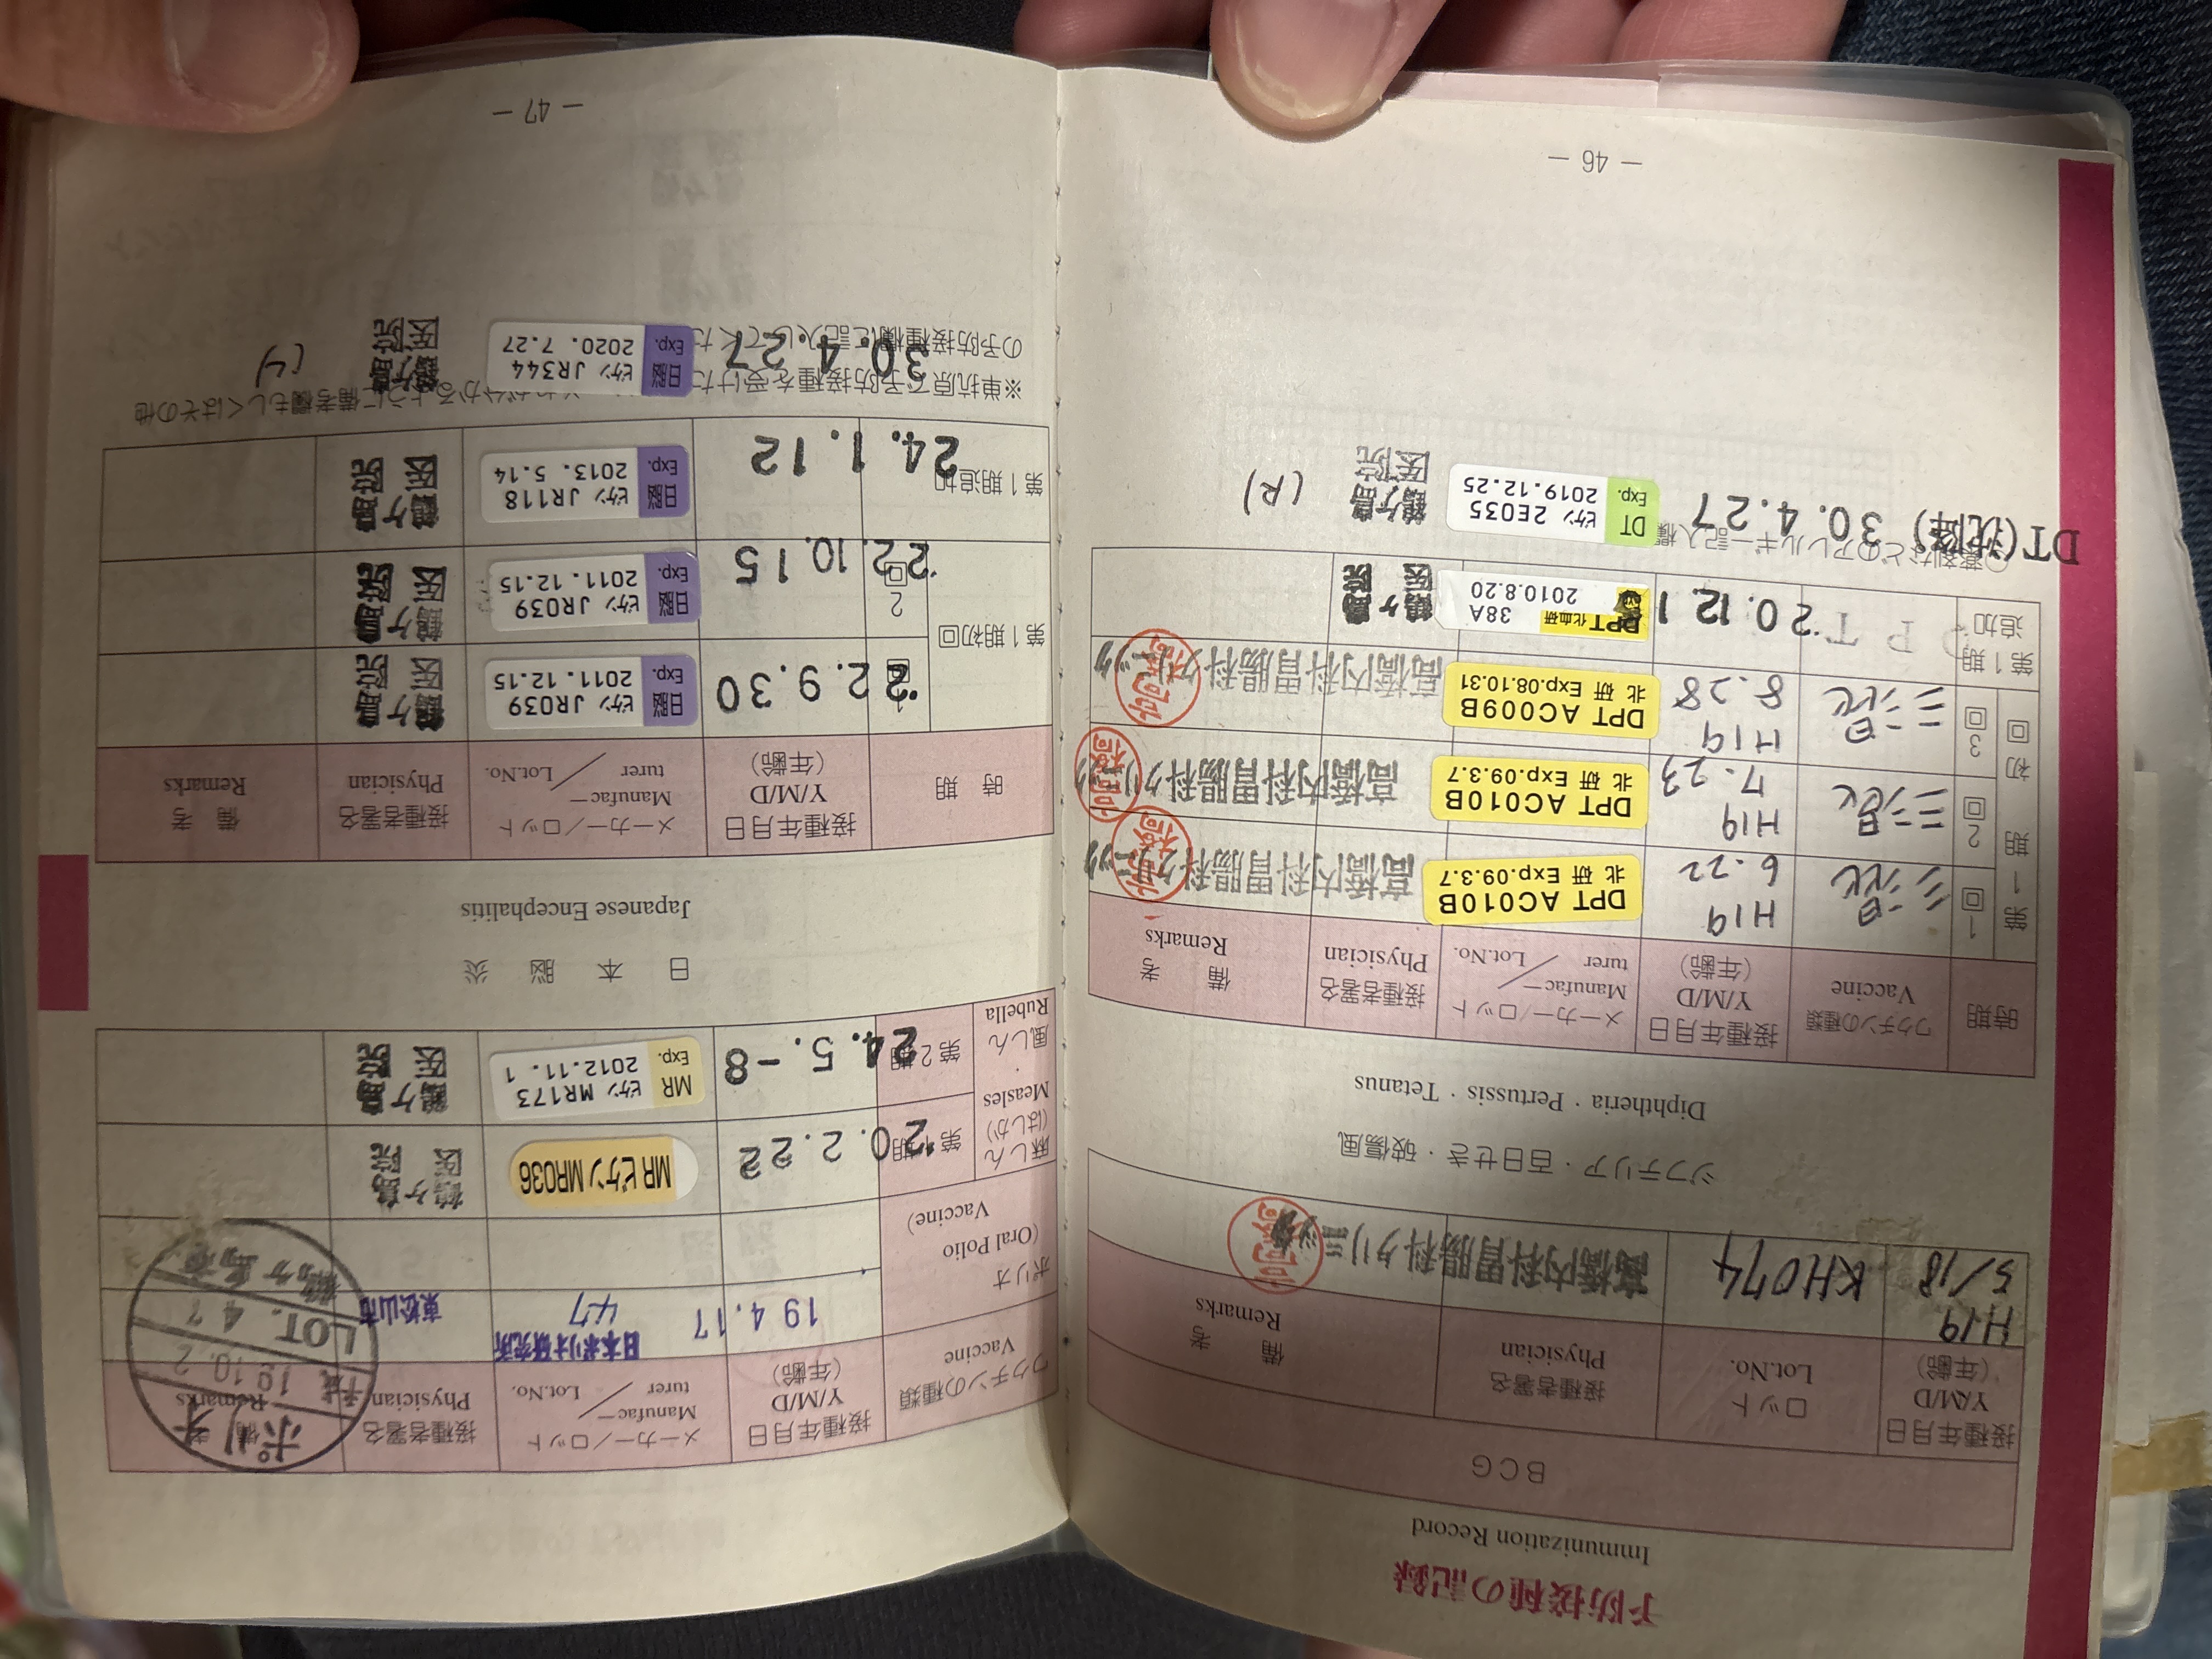 予防接種の記録
Immunization Record
BCG
接種年月日
Y/M/D
（年齢）
ロット
Lot.No.
接種者署名
Physician
備考
Remarks
H19
5/18
KH074
高橋内科胃腸科クリニック
ジフテリア・百日せき・破傷風
Diphtheria・Pertussis・Tetanus
時期
ワクチンの種類
Vaccine
接種年月日
Y/M/D
（年齢）
メーカー／ロット
Manufac–turer ／ Lot.No.
接種者署名
Physician
備考
Remarks
第1期
初回
1回
三混
H19
6.22
DPT AC010B
北研 Exp.09.3.7
高橋内科胃腸科クリニック
2回
三混
H19
7.23
DPT AC010B
北研 Exp.09.3.7
高橋内科胃腸科クリニック
3回
三混
H19
8.28
DPT AC009B
北研 Exp.08.10.31
高橋内科胃腸科クリニック
第1期
追加
DPT
20.12.1
DPT 化血研 38A
2010.8.20
鶴ヶ島医院
DT(沈降) 30.4.27
DT ビケン 2E035
Exp. 2019.12.25
鶴ヶ島医院
(R)
— 46 —
ワクチンの種類
Vaccine
接種年月日
Y/M/D
（年齢）
メーカー／ロット
Manufac–turer ／ Lot.No.
接種者署名
Physician
備考
Remarks
ポリオ
(Oral Polio Vaccine)
19 4.17
日本ポリオ研究所
47
東松山市
ポリオ
平成 19.10.2
LOT. 47
鶴ヶ島市
麻しん
(はしか)
Measles
・
風しん
Rubella
第1期
20.2.22
MR ビケン MR036
鶴ヶ島医院
第2期
24.5.-8
MR ビケン MR173
Exp. 2012.11. 1
鶴ヶ島医院
日本脳炎
Japanese Encephalitis
時期
接種年月日
Y/M/D
（年齢）
メーカー／ロット
Manufac–turer ／ Lot.No.
接種者署名
Physician
備考
Remarks
第1期初回
1回
22.9.30
日脳 ビケン JR039
Exp. 2011.12.15
鶴ヶ島医院
2回
22.10.15
日脳 ビケン JR039
Exp. 2011.12.15
鶴ヶ島医院
第1期追加
24.1.12
日脳 ビケン JR118
Exp. 2013. 5.14
鶴ヶ島医院
※単抗原で予防接種を受けた
わかるように備考欄もしくはその他
の予防接種欄に記入してくだ
30.4.27
日脳 ビケン JR344
Exp. 2020. 7.27
鶴ヶ島医院
— 47 —